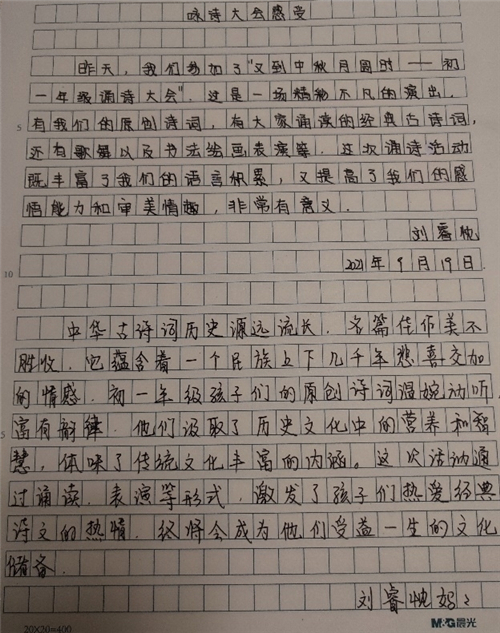 咏诗大会感受
昨天，我们参加了“又到中秋月圆时——初
一年级诵诗大会”。这是一场精彩不凡的演出.
有我们的原创诗词，有大家诵读的经典古诗词，
5
还有歌舞以及书法绘画表演等。这次诵诗活动
既丰富了我们的语言积累，又提高了我们的感
悟能力和审美情趣，非常有意义.
刘睿忱
2021年9月19日.
10
中华古诗词历史源远流长.名篇佳作美不
胜收.它蕴含着一个民族上下几千年悲喜交加
的情感.初一年级孩子们的原创诗词温婉动听.
富有韵律.他们汲取了历史文化中的营养和智
5
慧，体味了传统文化丰富的内涵。这次活动通
过诵读.表演等形式，激发了孩子们热爱经典
诗文的热情.终将会成为他们受益一生的文化
储备.
刘睿忱妈妈
20X20=400
M&G晨光